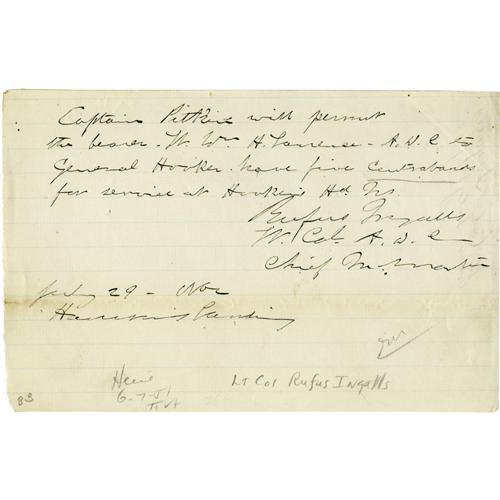 Captain Pitkin will permit
the bearer. Lt. Wm H. Lawrence - A.D.C to
General Hooker. have five Contrabands
for service at Hooker's Hd. Qrs.
Rufus Ingalls
Lt Col. A. D. C
Chief
July 29 -
Harrison's Landing
Lt Col Rufus Ingalls
83